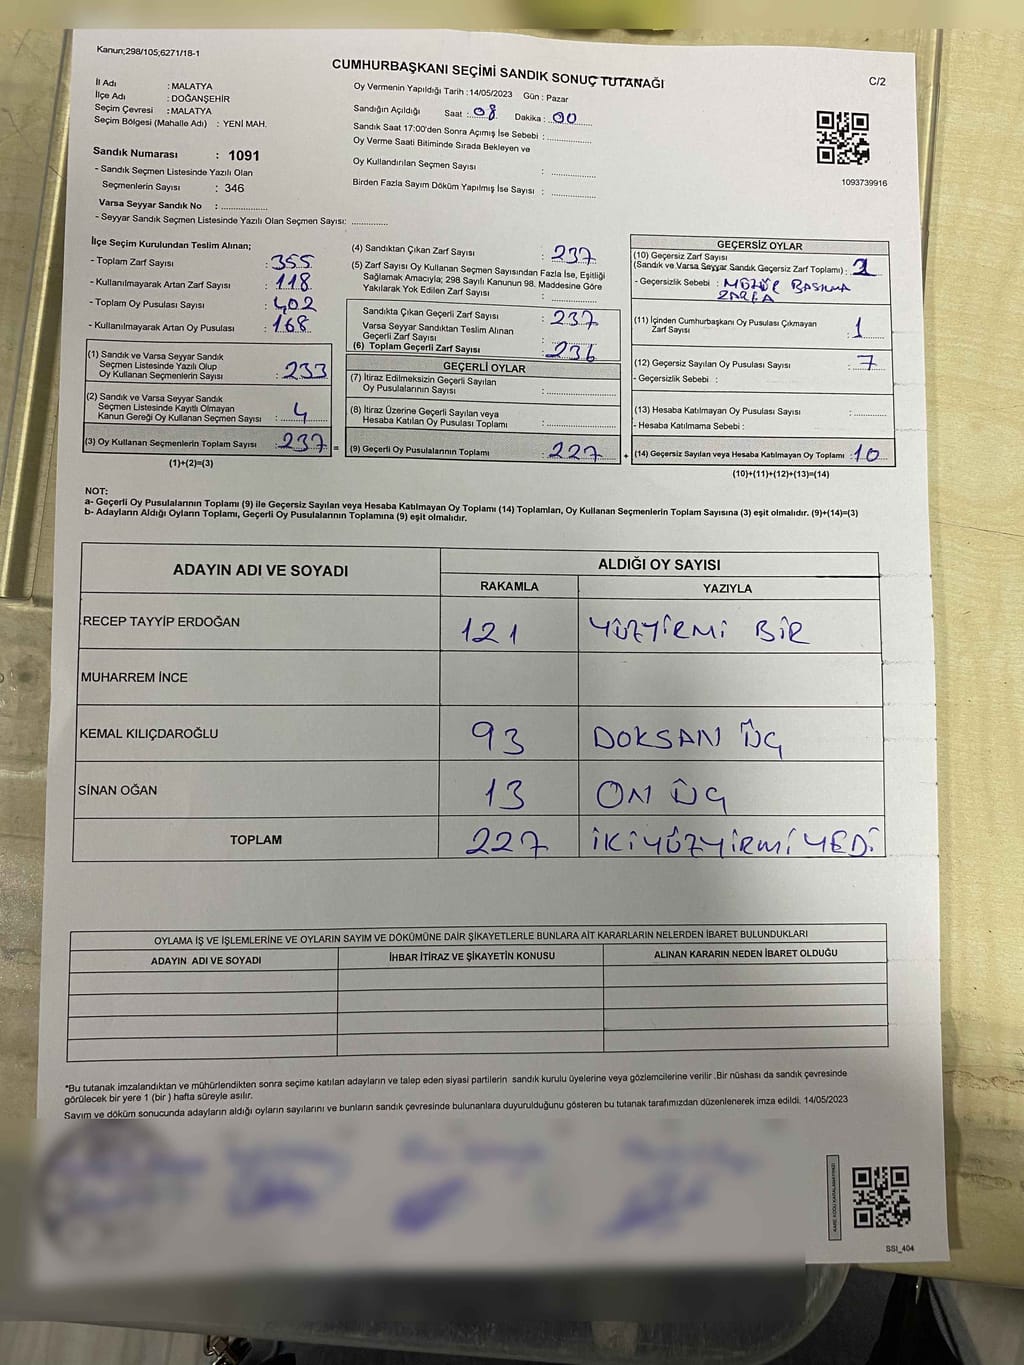 Kanun;298/105;6271/18-1
CUMHURBAŞKANI SEÇİMİ SANDIK SONUÇ TUTANAĞI
C/2
İl Adı : MALATYA
İlçe Adı : DOĞANŞEHİR
Seçim Çevresi : MALATYA
Seçim Bölgesi (Mahalle Adı) : YENİ MAH.
Sandık Numarası : 1091
- Sandık Seçmen Listesinde Yazılı Olan
Seçmenlerin Sayısı : 346
Varsa Seyyar Sandık No : ..................
- Seyyar Sandık Seçmen Listesinde Yazılı Olan Seçmen Sayısı: ..............
Oy Vermenin Yapıldığı Tarih : 14/05/2023 Gün : Pazar
Sandığın Açıldığı Saat : 08 Dakika : 00
Sandık Saat 17:00'den Sonra Açımış İse Sebebi : ..............
Oy Verme Saati Bitiminde Sırada Bekleyen ve
Oy Kullandırılan Seçmen Sayısı : ..............
Birden Fazla Sayım Döküm Yapılmış İse Sayısı : ..............
1093739916
İlçe Seçim Kurulundan Teslim Alınan;
- Toplam Zarf Sayısı : 355
- Kullanılmayarak Artan Zarf Sayısı : 118
- Toplam Oy Pusulası Sayısı : 402
- Kullanılmayarak Artan Oy Pusulası : 168
(1) Sandık ve Varsa Seyyar Sandık
Seçmen Listesinde Yazılı Olup
Oy Kullanan Seçmenlerin Sayısı : 233
(2) Sandık ve Varsa Seyyar Sandık
Seçmen Listesinde Kayıtlı Olmayan
Kanun Gereği Oy Kullanan Seçmen Sayısı : 4
(3) Oy Kullanan Seçmenlerin Toplam Sayısı : 237 =
(1)+(2)=(3)
(4) Sandıktan Çıkan Zarf Sayısı : 237
(5) Zarf Sayısı Oy Kullanan Seçmen Sayısından Fazla İse, Eşitliği
Sağlamak Amacıyla; 298 Sayılı Kanunun 98. Maddesine Göre
Yakılarak Yok Edilen Zarf Sayısı : ..............
Sandıkta Çıkan Geçerli Zarf Sayısı : 237
Varsa Seyyar Sandıktan Teslim Alınan
Geçerli Zarf Sayısı : ..............
(6) Toplam Geçerli Zarf Sayısı : 236
GEÇERLİ OYLAR
(7) İtiraz Edilmeksizin Geçerli Sayılan
Oy Pusulalarının Sayısı : ..............
(8) İtiraz Üzerine Geçerli Sayılan veya
Hesaba Katılan Oy Pusulası Toplamı : ..............
(9) Geçerli Oy Pusulalarının Toplamı : 227 +
GEÇERSİZ OYLAR
(10) Geçersiz Zarf Sayısı
(Sandık ve Varsa Seyyar Sandık Geçersiz Zarf Toplamı) : 2
- Geçersizlik Sebebi : MÜHÜR BASILMA
ZARFA
(11) İçinden Cumhurbaşkanı Oy Pusulası Çıkmayan
Zarf Sayısı : 1
(12) Geçersiz Sayılan Oy Pusulası Sayısı : 7
- Geçersizlik Sebebi :
(13) Hesaba Katılmayan Oy Pusulası Sayısı : ..............
- Hesaba Katılmama Sebebi :
(14) Geçersiz Sayılan veya Hesaba Katılmayan Oy Toplamı : 10
(10)+(11)+(12)+(13)=(14)
NOT:
a- Geçerli Oy Pusulalarının Toplamı (9) ile Geçersiz Sayılan veya Hesaba Katılmayan Oy Toplamı (14) Toplamları, Oy Kullanan Seçmenlerin Toplam Sayısına (3) eşit olmalıdır. (9)+(14)=(3)
b- Adayların Aldığı Oyların Toplamı, Geçerli Oy Pusulalarının Toplamına (9) eşit olmalıdır.
ADAYIN ADI VE SOYADI ALDIĞI OY SAYISI
RAKAMLA YAZIYLA
RECEP TAYYİP ERDOĞAN 121 YÜZYİRMİ BİR
MUHARREM İNCE
KEMAL KILIÇDAROĞLU 93 DOKSAN ÜÇ
SİNAN OĞAN 13 ON ÜÇ
TOPLAM 227 İKİYÜZYİRMİYEDİ
OYLAMA İŞ VE İŞLEMLERİNE VE OYLARIN SAYIM VE DÖKÜMÜNE DAİR ŞİKAYETLERLE BUNLARA AİT KARARLARIN NELERDEN İBARET BULUNDUKLARI
ADAYIN ADI VE SOYADI İHBAR İTİRAZ VE ŞİKAYETİN KONUSU ALINAN KARARIN NEDEN İBARET OLDUĞU
*Bu tutanak imzalandıktan ve mühürlendikten sonra seçime katılan adayların ve talep eden siyasi partilerin sandık kurulu üyelerine veya gözlemcilerine verilir .Bir nüshası da sandık çevresinde
görülecek bir yere 1 (bir ) hafta süreyle asılır.
Sayım ve döküm sonucunda adayların aldığı oyların sayılarını ve bunların sandık çevresinde bulunanlara duyurulduğunu gösteren bu tutanak tarafımızdan düzenlenerek imza edildi. 14/05/2023
KARE KODU KARALAMAYINIZ!
SSI_404